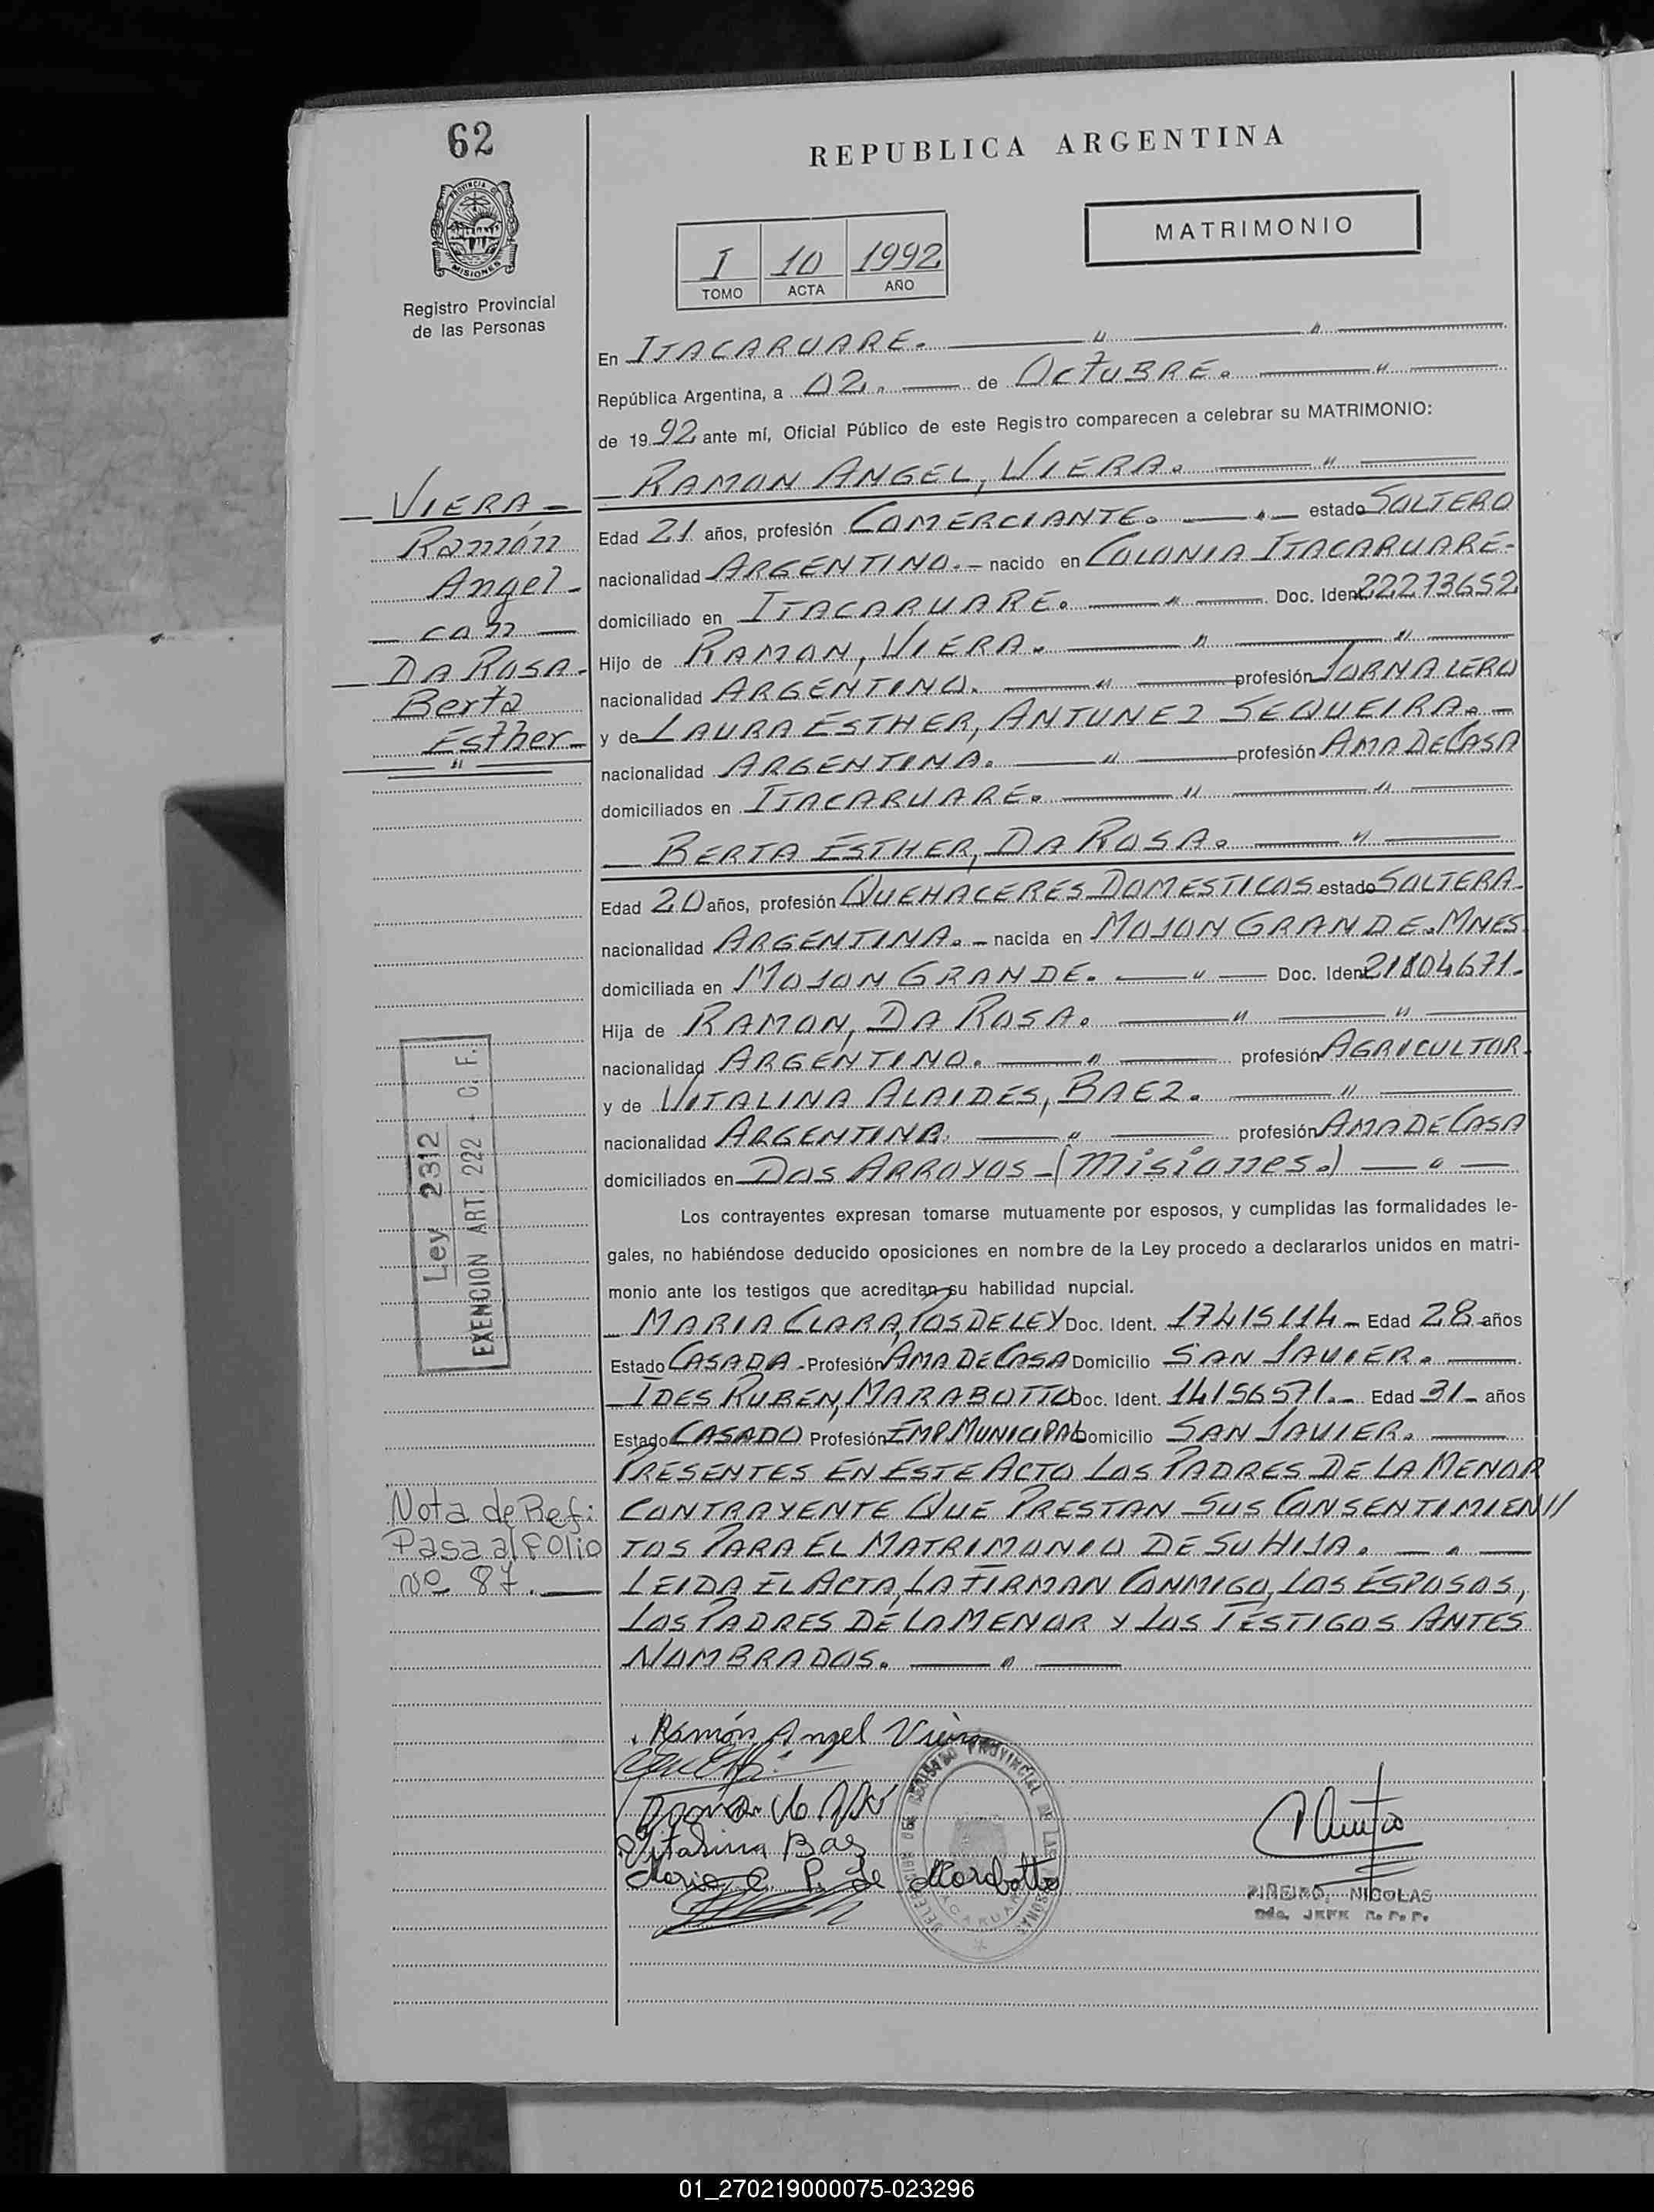 62
REPUBLICA ARGENTINA
PROVINCIA DE
MISIONES
Registro Provincial
de las Personas
MATRIMONIO
I 10 1992
TOMO ACTA AÑO
En ITACARUARE. — " — " —
República Argentina, a 02. — de OCTUBRE. — " —
de 1992 ante mí, Oficial Público de este Registro comparecen a celebrar su MATRIMONIO:
— RAMON ANGEL, VIERA. — " —
Edad 21 años, profesión COMERCIANTE. — " — estado SOLTERO
nacionalidad ARGENTINO. — nacido en COLONIA ITACARUARE-
domiciliado en ITACARUARE. — " — Doc. Ident. 22273652
Hijo de RAMON, VIERA. — " — " —
nacionalidad ARGENTINO. — " — profesión JORNALERO
y de LAURA ESTHER, ANTUNEZ SEQUEIRA. —
nacionalidad ARGENTINA. — " — profesión AMA DE CASA
domiciliados en ITACARUARE. — " — " —
— BERTA ESTHER, DA ROSA. — " —
Edad 20 años, profesión QUEHACERES DOMESTICOS estado SOLTERA-
nacionalidad ARGENTINA. — nacida en MOJON GRANDE. MNES
domiciliada en MOJON GRANDE. — " — Doc. Ident. 21104671.
Hija de RAMON, DA ROSA. — " — " —
nacionalidad ARGENTINO. — " — profesión AGRICULTOR.
y de VITALINA ALAIDES, BAEZ. — " —
nacionalidad ARGENTINA. — " — profesión AMA DE CASA
domiciliados en DOS ARROYOS - (Misiones.) — " —
Los contrayentes expresan tomarse mutuamente por esposos, y cumplidas las formalidades le-
gales, no habiéndose deducido oposiciones en nombre de la Ley procedo a declararlos unidos en matri-
monio ante los testigos que acreditan su habilidad nupcial.
— MARIA CLARA, POSDELEY Doc. Ident. 17415114 — Edad 28 años
Estado CASADA - Profesión AMA DE CASA Domicilio SAN JAVIER. —
— IDES RUBEN, MARABOTTO Doc. Ident. 14156571. — Edad 31 — años
Estado CASADO Profesión EMP. MUNICIPAL Domicilio SAN JAVIER. —
PRESENTES EN ESTE ACTO LOS PADRES DE LA MENOR
CONTRAYENTE QUE PRESTAN SUS CONSENTIMIEN//
TOS PARA EL MATRIMONIO DE SU HIJA. — " —
LEIDA EL ACTA, LA FIRMAN CONMIGO, LOS ESPOSOS,
LOS PADRES DE LA MENOR Y LOS TESTIGOS ANTES
NOMBRADOS. — " —
VIERA —
Ramón
Angel -
— con —
DA ROSA -
Berta
Esther —
Ley 2312
EXENCION ART. 222 - C. F.
Nota de Ref:
Pasa al folio
nº 87. —
Ramón Angel Viera
Vitalina Baez
Maria C. P. de Marabotto
PIÑEIRO, NICOLAS
Gdo. JEFE R. P. P.
01_270219000075-023296